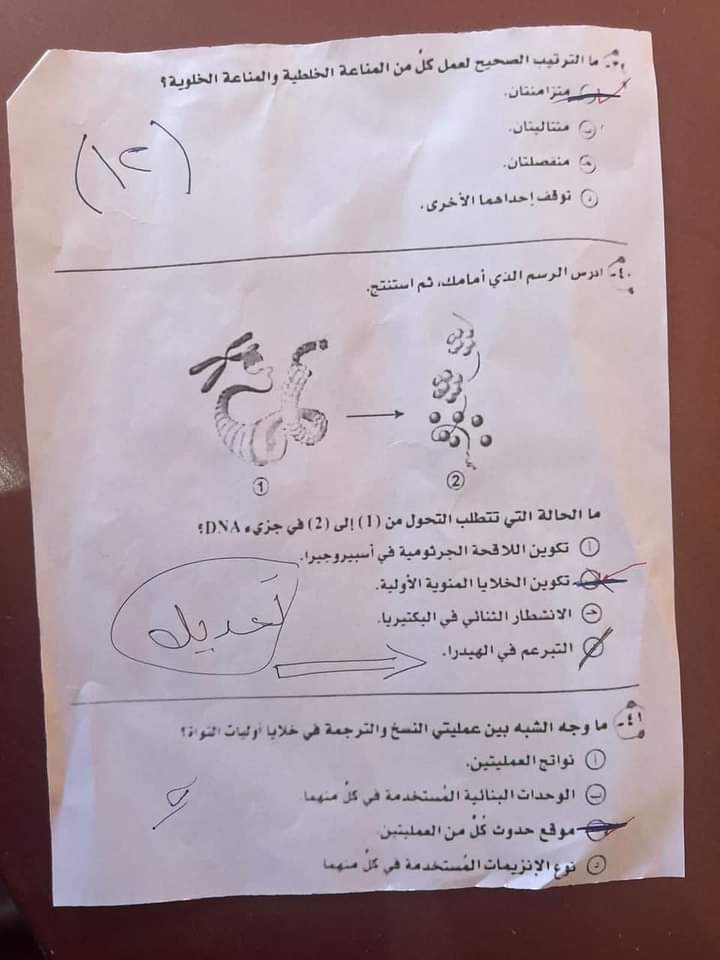 ما الترتيب الصحيح لعمل كلٌ من المناعة الخلطية والمناعة الخلوية؟
متزامنتان.
ب متتاليتان.
ج منفصلتان.
د توقف إحداهما الأخرى.
(١٢)
٤٠- ادرس الرسم الذي أمامك، ثم استنتج.
1
2
ما الحالة التي تتطلب التحول من (1) إلى (2) في جزيء DNA؟
أ تكوين اللاقحة الجرثومية في أسبيروجيرا.
تكوين الخلايا المنوية الأولية.
ج الانشطار الثنائي في البكتيريا.
التبرعم في الهيدرا.
تعديل
٤١- ما وجه الشبه بين عمليتي النسخ والترجمة في خلايا أوليات النواة؟
أ نواتج العمليتين.
ب الوحدات البنائية المُستخدمة في كلٌ منهما.
موقع حدوث كُلٌ من العمليتين.
د نوع الإنزيمات المُستخدمة في كلٌ منهما